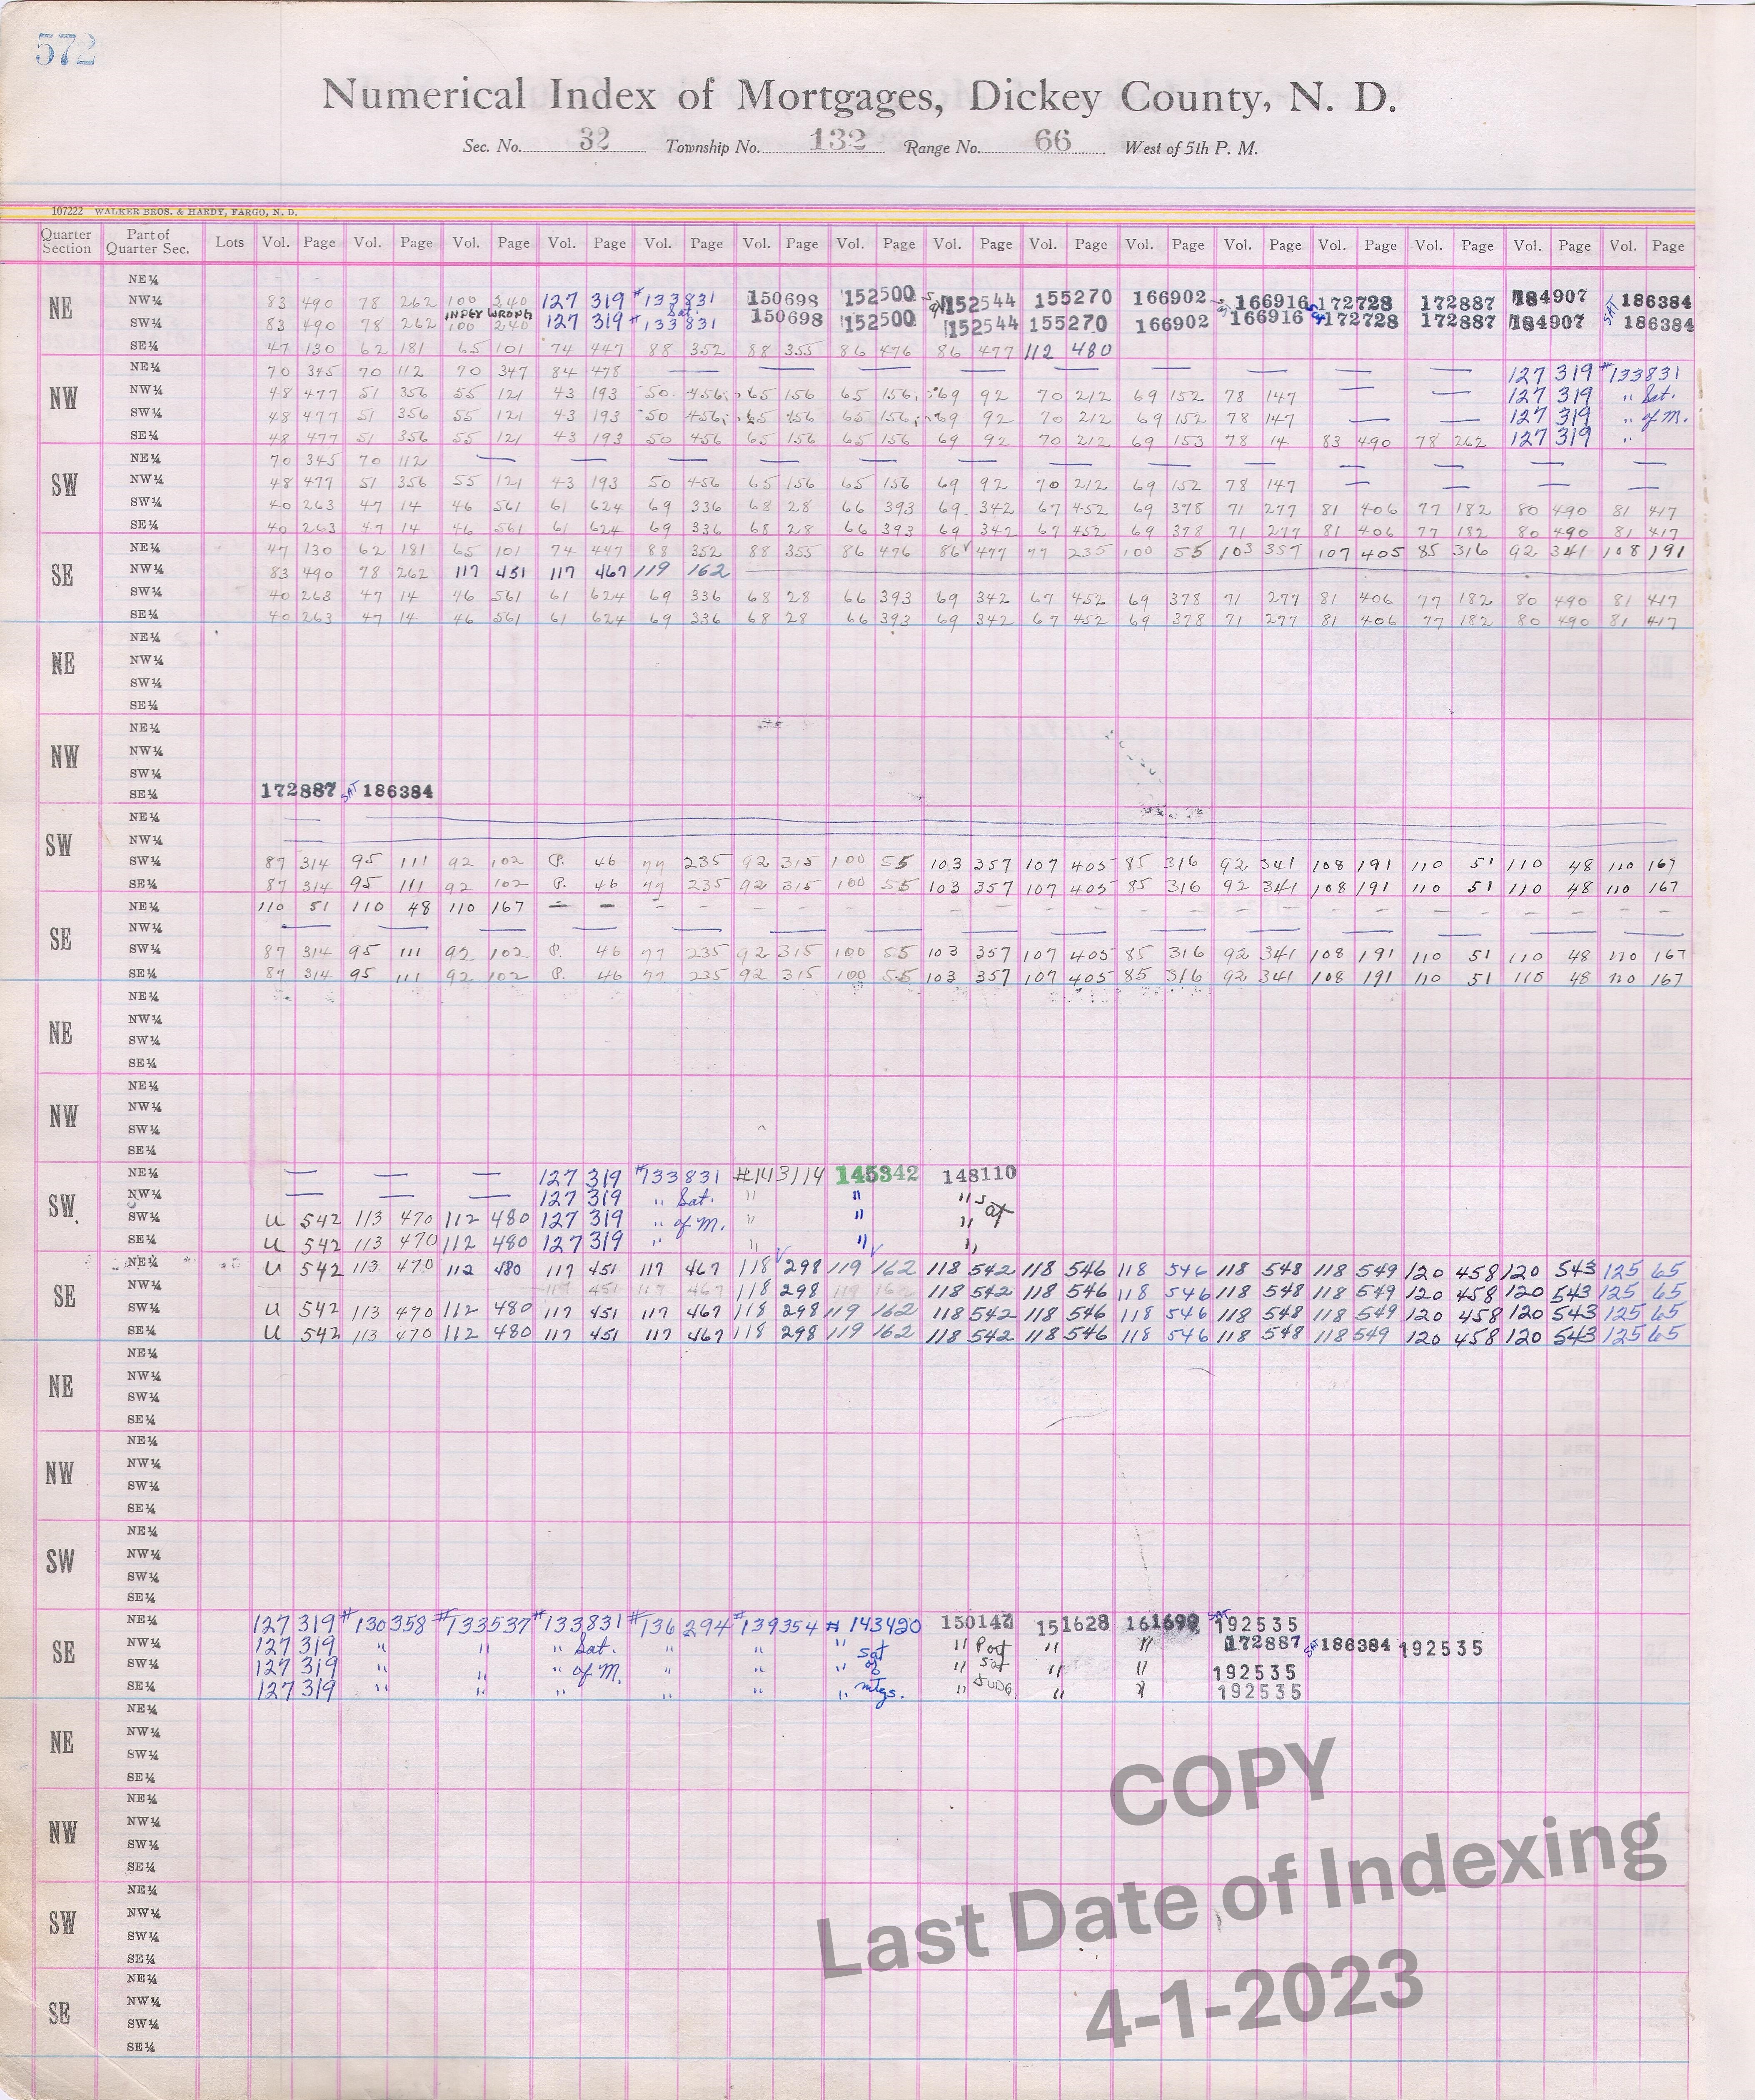 572
Numerical Index of Mortgages, Dickey County, N. D.
Sec. No. 32 Township No. 132 Range No. 66 West of 5th P. M.
107222 WALKER BROS. & HARDY, FARGO, N. D.
Quarter Section Part of Quarter Sec. Lots Vol. Page Vol. Page Vol. Page Vol. Page Vol. Page Vol. Page Vol. Page Vol. Page Vol. Page Vol. Page Vol. Page Vol. Page Vol. Page Vol. Page Vol. Page
NE NE¼
NW¼ 83 490 78 262 100 240 127 319 #133831 150698 152500 152544 155270 166902 166916 172728 172887 184907 SAT 186384
INDEX WRONG Sat.
SW¼ 83 490 78 262 100 240 127 319 #133831 150698 152500 152544 155270 166902 166916 172728 172887 184907 186384
SE¼ 47 130 62 181 65 101 74 447 88 352 88 355 86 476 86 477 112 480
NW NE¼ 70 345 70 112 70 347 84 478 — — — — — — — — — 127 319 #133831
NW¼ 48 477 51 356 55 121 43 193 50 456 65 156 65 156 69 92 70 212 69 152 78 147 — — 127 319 " Sat.
SW¼ 48 477 51 356 55 121 43 193 50 456 65 156 65 156 69 92 70 212 69 152 78 147 — — 127 319 " of M.
SE¼ 48 477 51 356 55 121 43 193 50 456 65 156 65 156 69 92 70 212 69 153 78 14 83 490 78 262 127 319 "
SW NE¼ 70 345 70 112 — — — — — — — — — — — — —
NW¼ 48 477 51 356 55 121 43 193 50 456 65 156 65 156 69 92 70 212 69 152 78 147 — — — —
SW¼ 40 263 47 14 46 561 61 624 69 336 68 28 66 393 69 342 67 452 69 378 71 277 81 406 77 182 80 490 81 417
SE¼ 40 263 47 14 46 561 61 624 69 336 68 28 66 393 69 342 67 452 69 378 71 277 81 406 77 182 80 490 81 417
SE NE¼ 47 130 62 181 65 101 74 447 88 352 88 355 86 476 86 477 77 235 100 55 103 357 107 405 85 316 92 341 108 191
NW¼ 83 490 78 262 117 451 117 467 119 162
SW¼ 40 263 47 14 46 561 61 624 69 336 68 28 66 393 69 342 67 452 69 378 71 277 81 406 77 182 80 490 81 417
SE¼ 40 263 47 14 46 561 61 624 69 336 68 28 66 393 69 342 67 452 69 378 71 277 81 406 77 182 80 490 81 417
NE NE¼
NW¼
SW¼
SE¼
NW NE¼
NW¼
SW¼
SE¼ 172887 SAT 186384
SW NE¼ —
NW¼ —
SW¼ 87 314 95 111 92 102 P. 46 77 235 92 315 100 55 103 357 107 405 85 316 92 341 108 191 110 51 110 48 110 167
SE¼ 87 314 95 111 92 102 P. 46 77 235 92 315 100 55 103 357 107 405 85 316 92 341 108 191 110 51 110 48 110 167
SE NE¼ 110 51 110 48 110 167 — —
NW¼ — — — — — — — — — — — — — — —
SW¼ 87 314 95 111 92 102 P. 46 77 235 92 315 100 55 103 357 107 405 85 316 92 341 108 191 110 51 110 48 110 167
SE¼ 87 314 95 111 92 102 P. 46 77 235 92 315 100 55 103 357 107 405 85 316 92 341 108 191 110 51 110 48 110 167
NE NE¼
NW¼
SW¼
SE¼
NW NE¼
NW¼
SW¼
SE¼
SW NE¼ — — — 127 319 #133831 #143114 145342 148110
NW¼ — — — 127 319 " Sat. " " " Sat
SW¼ U 542 113 470 112 480 127 319 " of M. " " "
SE¼ U 542 113 470 112 480 127 319 " " " "
SE NE¼ U 542 113 470 112 480 117 451 117 467 118 298 119 162 118 542 118 546 118 546 118 548 118 549 120 458 120 543 125 65
NW¼ 117 451 117 467 118 298 119 162 118 542 118 546 118 546 118 548 118 549 120 458 120 543 125 65
SW¼ U 542 113 470 112 480 117 451 117 467 118 298 119 162 118 542 118 546 118 546 118 548 118 549 120 458 120 543 125 65
SE¼ U 542 113 470 112 480 117 451 117 467 118 298 119 162 118 542 118 546 118 546 118 548 118 549 120 458 120 543 125 65
NE NE¼
NW¼
SW¼
SE¼
NW NE¼
NW¼
SW¼
SE¼
SW NE¼
NW¼
SW¼
SE¼
SE NE¼ 127 319 #130358 #133537 #133831 #136294 #139354 #143420 150147 151628 161699 SAT 192535
NW¼ 127 319 " " " Sat. " " " Sat " " " 172887 186384 192535
SW¼ 127 319 " " " of M. " " " of " Sat " " 192535
SE¼ 127 319 " " " " " " mtgs. " " " 192535
NE NE¼
NW¼
SW¼
SE¼
NW NE¼
NW¼
SW¼
SE¼
SW NE¼
NW¼
SW¼
SE¼
SE NE¼
NW¼
SW¼
SE¼
COPY
Last Date of Indexing
4-1-2023